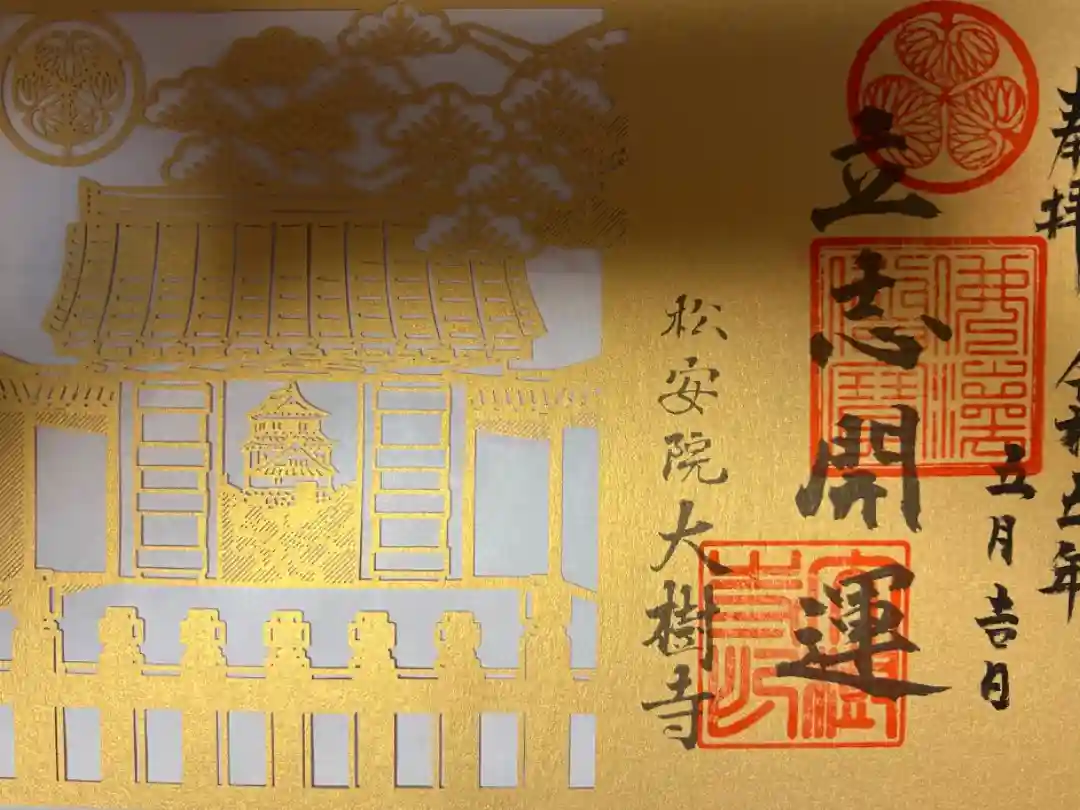 奉拝 令和五年
五月吉日
立志開運
松安院大樹寺